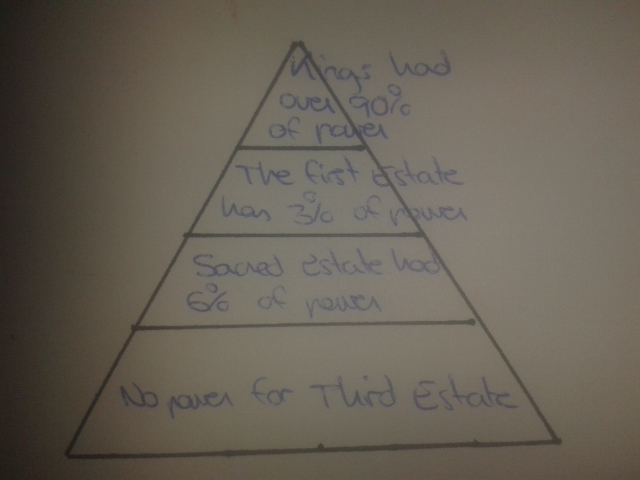 Kings had
over 90%
of power
The first Estate
has 3% of power
Sacred Estate had
6% of power
No power for Third Estate